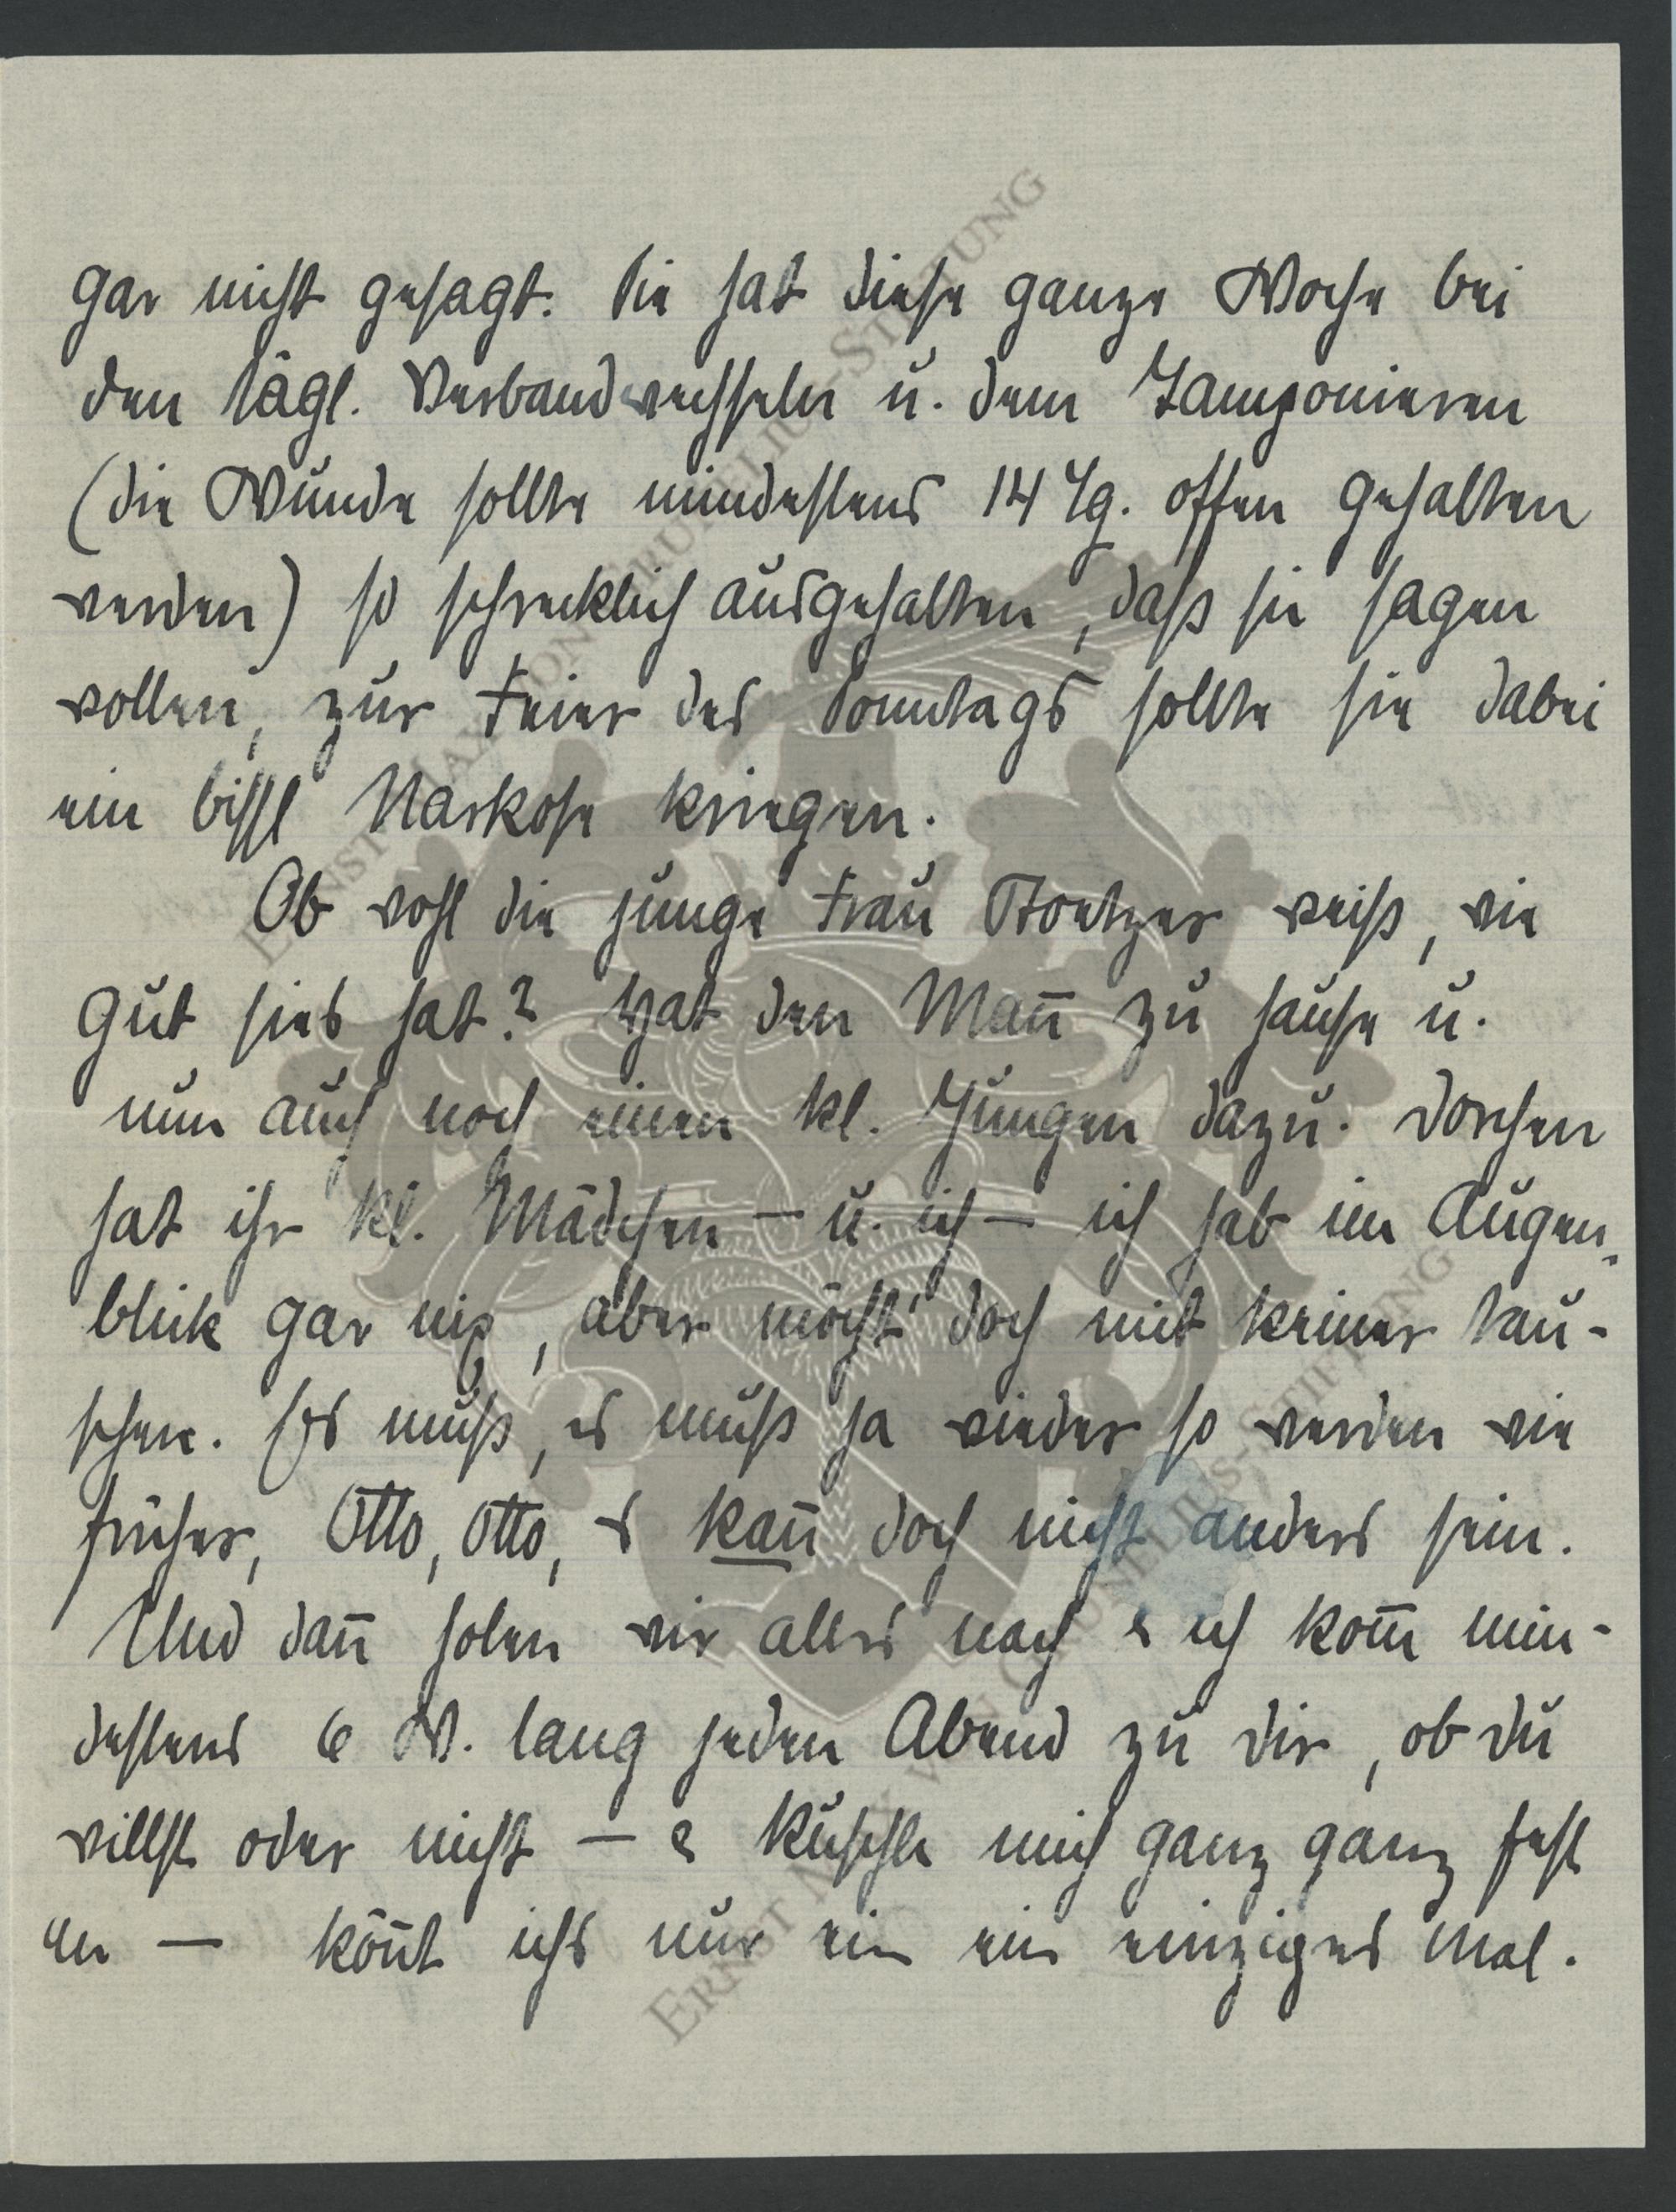 gar nicht gesagt. Sie hat diese ganze Woche bei
den tägl. Verbandwechseln u. dem Tamponieren
(die Wunde sollte mindestens 14 Tg. offen gehalten
werden) so schrecklich ausgehalten, daß sie sagen
wollen, zur Feier des Sonntags sollte sie dabei
ein bissl Narkose kriegen.
Ob wohl die junge Frau weiß, wie
gut sies hat? Hat den Mañ zu hause u.
nun auch noch einen kl. Jungen dazu. Dorchen
hat ihr kl. Mädchen – u. ich – ich hab im Augen-
blick gar nix, aber möcht' doch mit keiner tau-
schen. Es muß, es muß ja wieder so werden wie
früher, Otto, Otto, es kañ doch nicht anders sein.
Und dañ holen wir alles nach & ich kom̄ min-
destens 6 W. lang jeden Abend zu dir, ob du
willst oder nicht – & kuschle mich ganz ganz fest
an – köñt ichs nur ein ein einziges Mal.
ERNST MAX VON GRUNELIUS-STIFTUNG
ERNST MAX VON GRUNELIUS-STIFTUNG